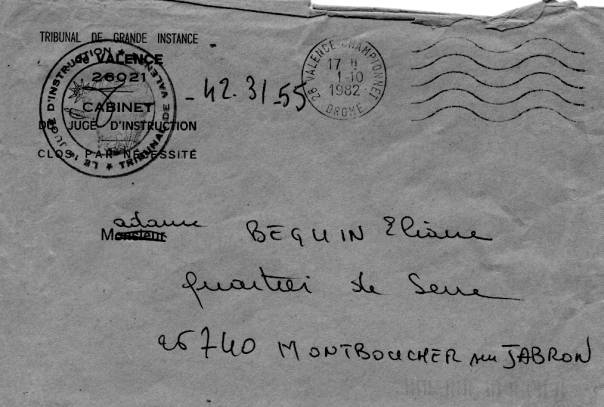 TRIBUNAL DE GRANDE INSTANCE
VALENCE
26021
CABINET
DU JUGE D'INSTRUCTION
CLOS PAR NÉCESSITÉ
LE JUGE D'INSTRUCTION ★ TRIBUNAL DE VALENCE ★
- 42.31-55
26 VALENCE-CHAMPIONNET
17 H
1.10
1982
DROME
Monsieur adame BEGUIN Eliane
quartier de Serre
26740 MONTBOUCHER sur JABRON